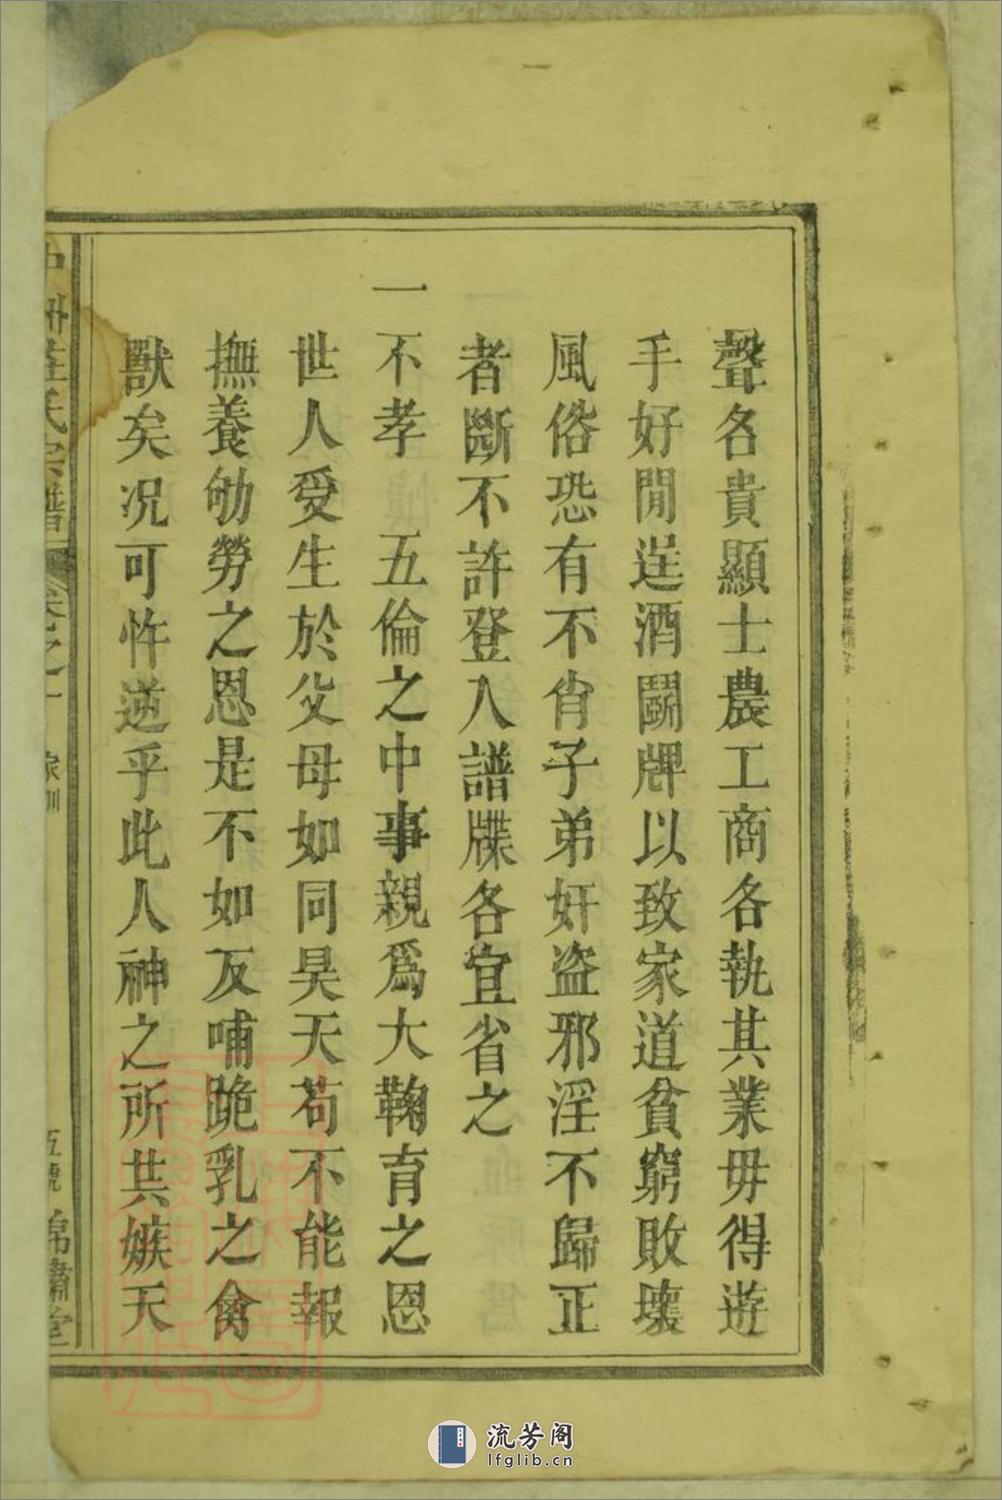 聲各貴顯士農工商各執其業毋得遊
手好閒逞酒鬪牌以致家道貧窮敗壞
風俗恐有不肖子弟奸盗邪淫不歸正
者斷不許登入譜牒各宜省之
一不孝　五倫之中事親爲大鞠育之恩
世人受生於父母如同昊天苟不能報
撫養劬勞之恩是不如反哺跪乳之禽
獸矣况可忤逆乎此人神之所共嫉天
氏宗譜
卷之一
家訓
五號
流芳阁
lfglib.cn